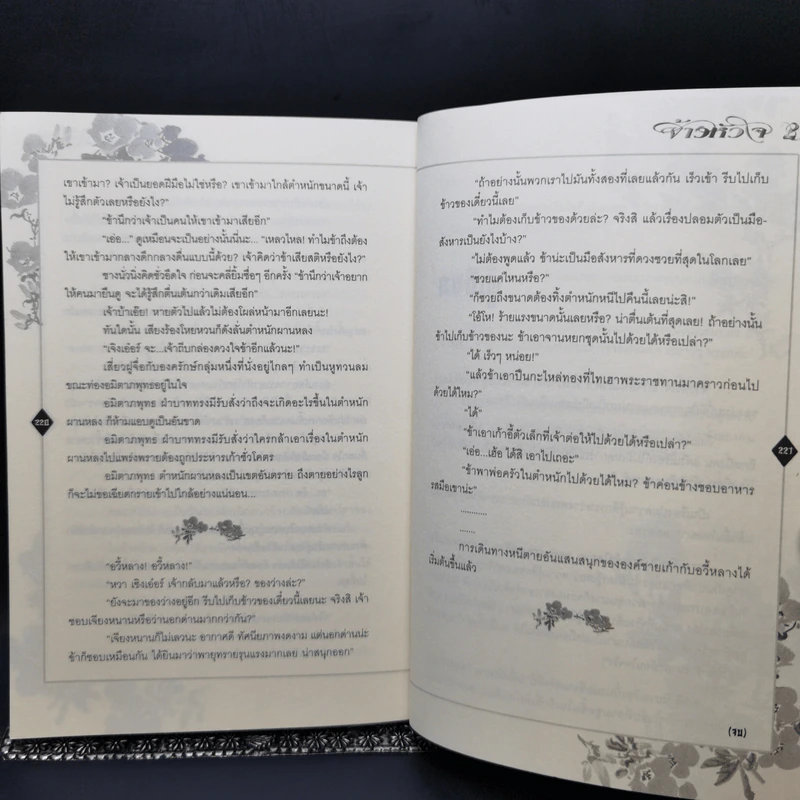 เขาเข้ามา? เจ้าเป็นยอดฝีมือไม่ใช่หรือ? เขาเข้ามาใกล้ตำหนักขนาดนี้ เจ้า
ไม่รู้สึกตัวเลยหรือยังไง?"
"ข้านึกว่าเจ้าเป็นคนให้เขาเข้ามาเสียอีก"
"เอ่อ..." ดูเหมือนจะเป็นอย่างนั้นนี่นะ... "เหลวไหล! ทำไมข้าถึงต้อง
ให้เขาเข้ามากลางดึกกลางดื่นแบบนี้ด้วย? เจ้าคิดว่าข้าเสียสติหรือยังไง?"
ชางนัวนิ่งคิดชั่วอึดใจ ก่อนจะคลี่ยิ้มซื่อๆ อีกครั้ง "ข้านึกว่าเจ้าอยาก
ให้คนมายืนดู จะได้รู้สึกตื่นเต้นกว่าเดิมเสียอีก"
เจ้าบ้าเอ๊ย! หายตัวไปแล้วไม่ต้องโผล่หน้ามาอีกเลยนะ!
ทันใดนั้น เสียงร้องโหยหวนก็ดังลั่นตำหนักผานหลง
"เจิงเอ๋อร์ จะ...เจ้าถีบกล่องดวงใจข้าอีกแล้วนะ!"
เสี่ยวฝูจื่อกับองครักษ์กลุ่มหนึ่งที่นั่งอยู่ไกลๆ ทำเป็นหูทวนลม
ขณะท่องอมิตาภพุทธอยู่ในใจ
อมิตาภพุทธ ฝ่าบาททรงมีรับสั่งว่าถึงจะเกิดอะไรขึ้นในตำหนัก
ผานหลง ก็ห้ามแอบดูเป็นอันขาด
อมิตาภพุทธ ฝ่าบาททรงมีรับสั่งว่าใครกล้าเอาเรื่องในตำหนัก
ผานหลงไปแพร่งพรายต้องถูกประหารเก้าชั่วโคตร
อมิตาภพุทธ ตำหนักผานหลงเป็นเขตอันตราย ถึงตายอย่างไรลูก
ก็จะไม่ขอเฉียดกรายเข้าไปใกล้อย่างแน่นอน...
"อวี้หลาง! อวี้หลาง!"
"หวา เชิงเอ๋อร์ เจ้ากลับมาแล้วหรือ? ของว่างล่ะ?"
"ยังจะมาของว่างอยู่อีก รีบไปเก็บข้าวของเดี๋ยวนี้เลยนะ จริงสิ เจ้า
ชอบเจียงหนานหรือว่านอกด่านมากกว่ากัน?"
"เจียงหนานก็ไม่เลวนะ อากาศดี ทัศนียภาพงดงาม แต่นอกด่านน่ะ
ข้าก็ชอบเหมือนกัน ได้ยินมาว่าพายุทรายรุนแรงมากเลย น่าสนุกออก"
220
จ้าวหัวใจ 2
"ถ้าอย่างนั้นพวกเราไปมันทั้งสองที่เลยแล้วกัน เร็วเข้า รีบไปเก็บ
ข้าวของเดี๋ยวนี้เลย"
"ทำไมต้องเก็บข้าวของด้วยล่ะ? จริงสิ แล้วเรื่องปลอมตัวเป็นมือ-
สังหารเป็นยังไงบ้าง?"
"ไม่ต้องพูดแล้ว ข้าน่ะเป็นมือสังหารที่ดวงซวยที่สุดในโลกเลย"
"ซวยแค่ไหนหรือ?"
"ก็ซวยถึงขนาดต้องทิ้งตำหนักหนีไปคืนนี้เลยน่ะสิ!"
"โอ้โห! ร้ายแรงขนาดนั้นเลยหรือ? น่าตื่นเต้นที่สุดเลย! ถ้าอย่างนั้น
ข้าไปเก็บข้าวของนะ ข้าเอาจานหยกชุดนั้นไปด้วยได้หรือเปล่า?"
"ได้ เร็วๆ หน่อย!"
"แล้วข้าเอาปิ่นกะไหล่ทองที่ไทเฮาพระราชทานมาคราวก่อนไป
ด้วยได้ไหม?"
"ได้"
"ข้าเอาเก้าอี้ตัวเล็กที่เจ้าต่อให้ไปด้วยได้หรือเปล่า?"
"เอ่อ...เฮ้อ ได้สิ เอาไปเถอะ"
"ข้าพาพ่อครัวในตำหนักไปด้วยได้ไหม? ข้าค่อนข้างชอบอาหาร
รสมือเขาน่ะ"
...........
.......
การเดินทางหนีตายอันแสนสนุกขององค์ชายเก้ากับอวี้หลางได้
เริ่มต้นขึ้นแล้ว
221
(จบ)